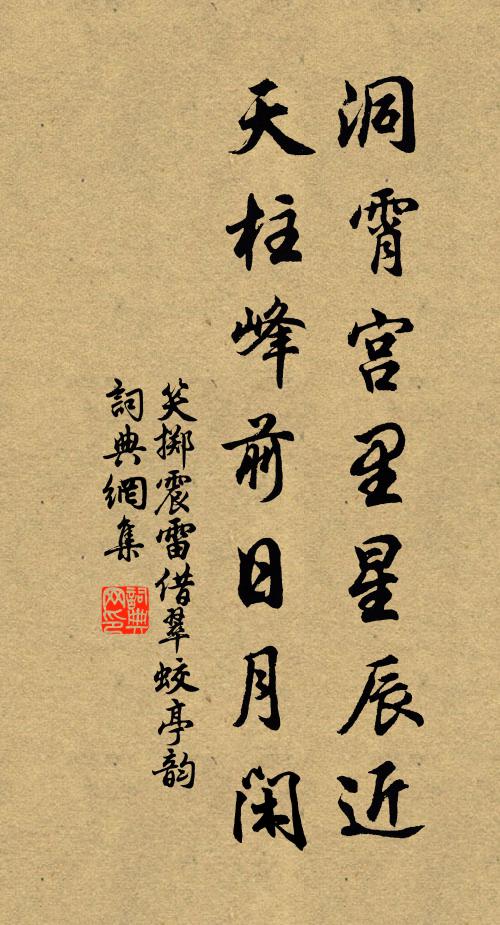 洞霄宫里星辰近
天柱峰前日月闲
笑掷震雷借翠蛟亭韵
詞典網集
詞典网印